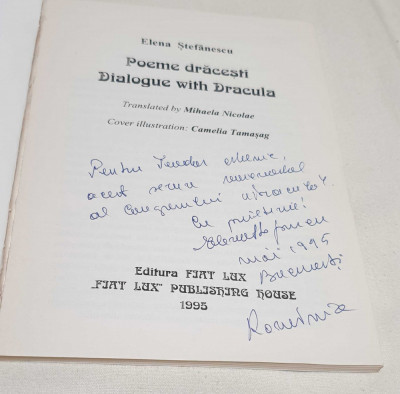 Elena Ștefănescu
Poeme drăcești
Dialogue with Dracula
Translated by Mihaela Nicolae
Cover illustration: Camelia Tamașag
Pentru Teodor
acest semn
al Congresului
Cu prietenie!
mai 1995
București
România
Editura FIAT LUX
„FIAT LUX" PUBLISHING HOUSE
1995